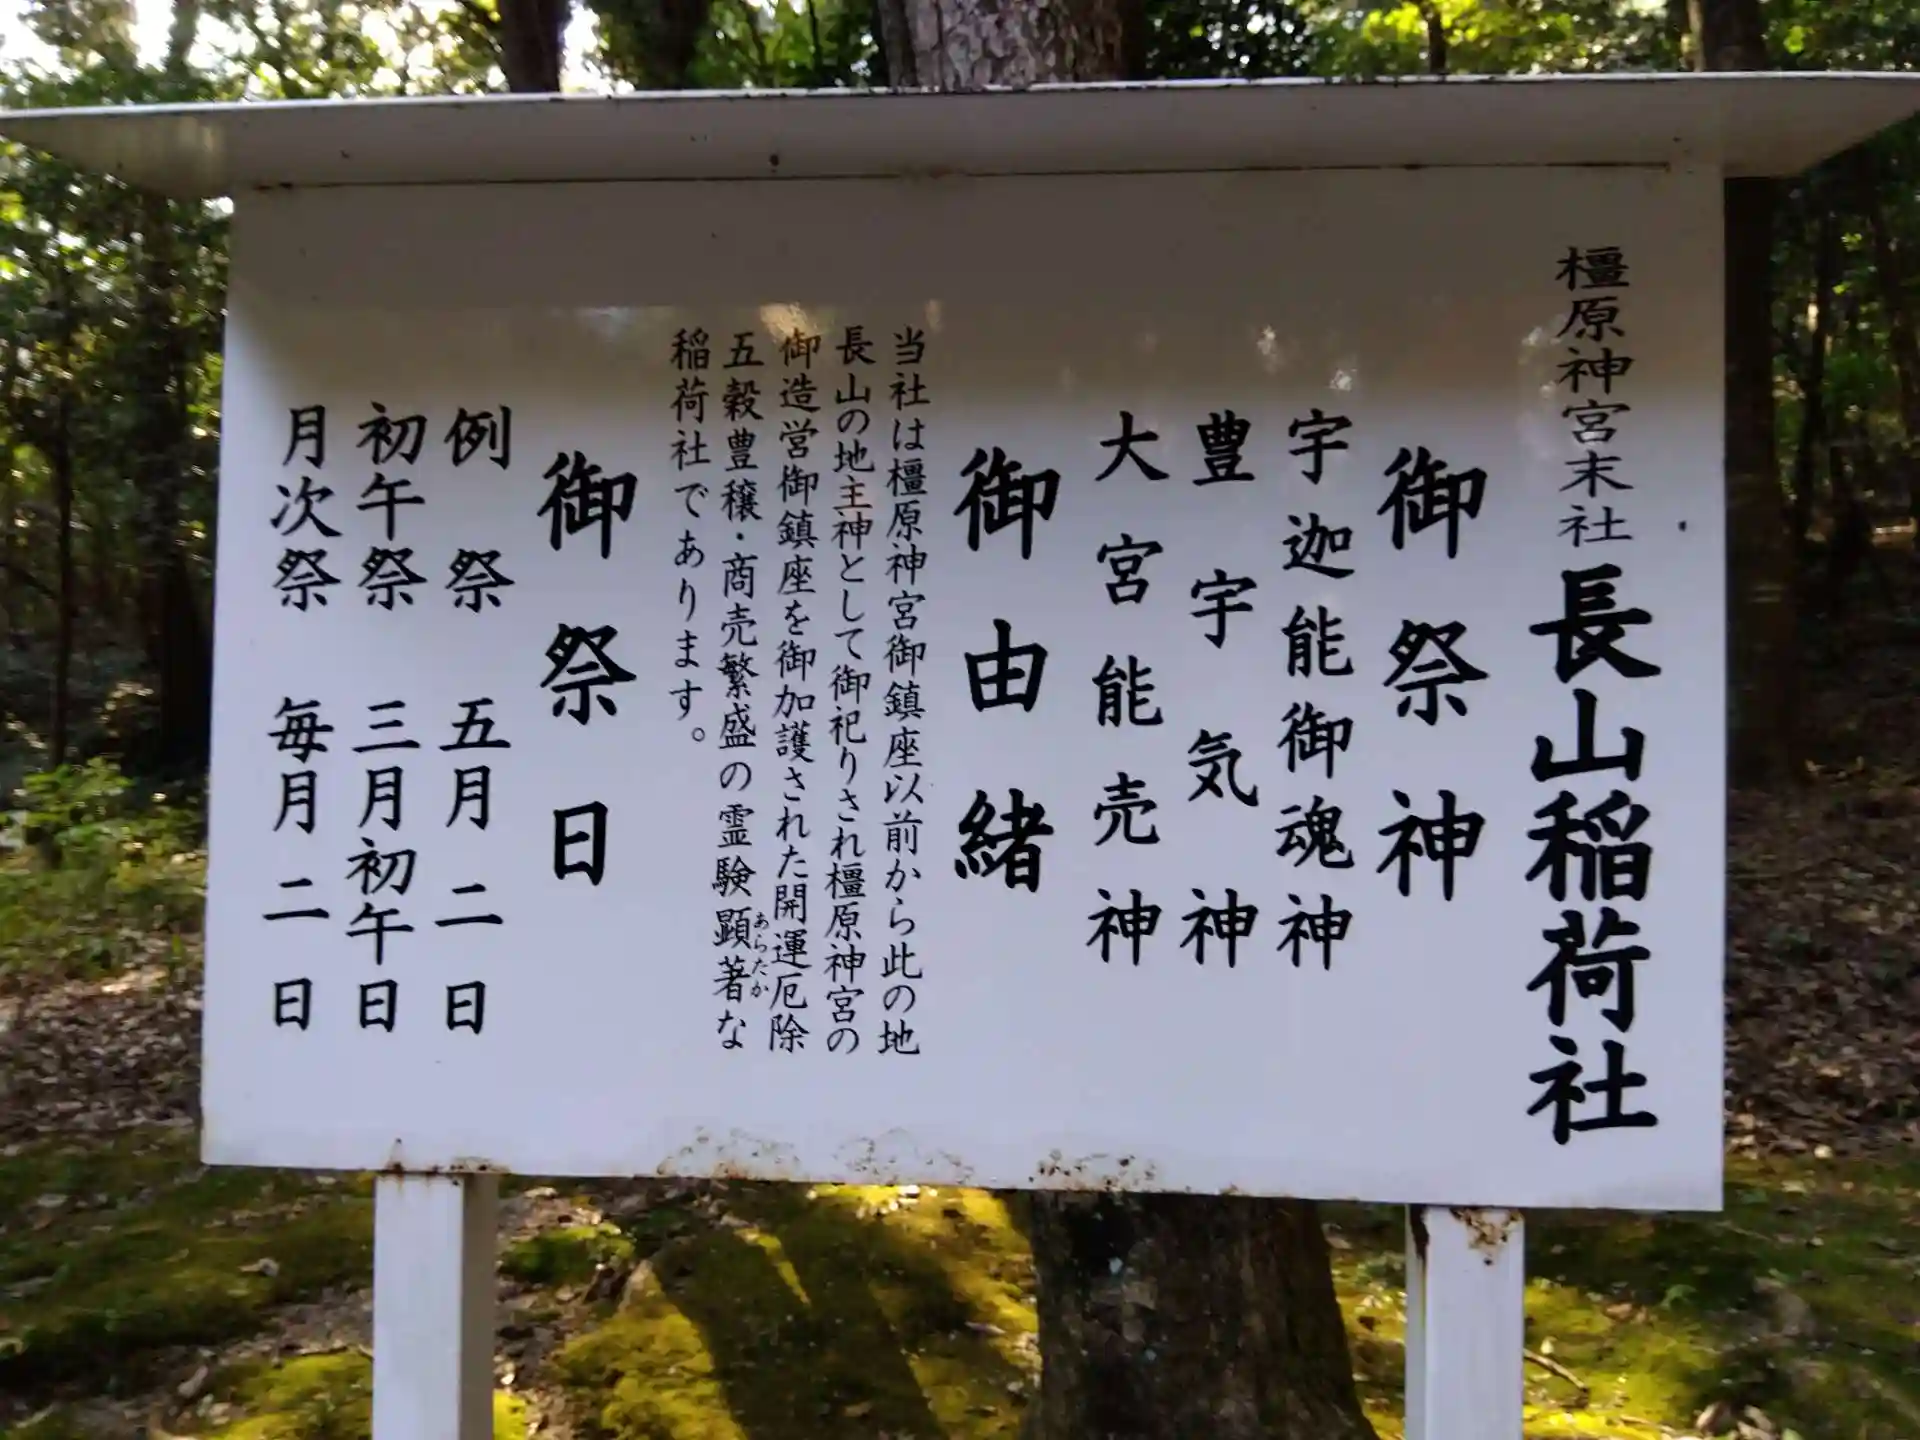 橿原神宮末社 長山稲荷社
御祭神
宇迦能御魂神
豊宇気神
大宮能売神
御由緒
当社は橿原神宮御鎮座以前から此の地
長山の地主神として御祀りされ橿原神宮の
御造営御鎮座を御加護された開運厄除
五穀豊穣・商売繁盛の霊験顕著な
あらたか
稲荷社であります。
御祭日
例 祭 五月 二 日
初午祭 三月初午日
月次祭 毎月 二 日